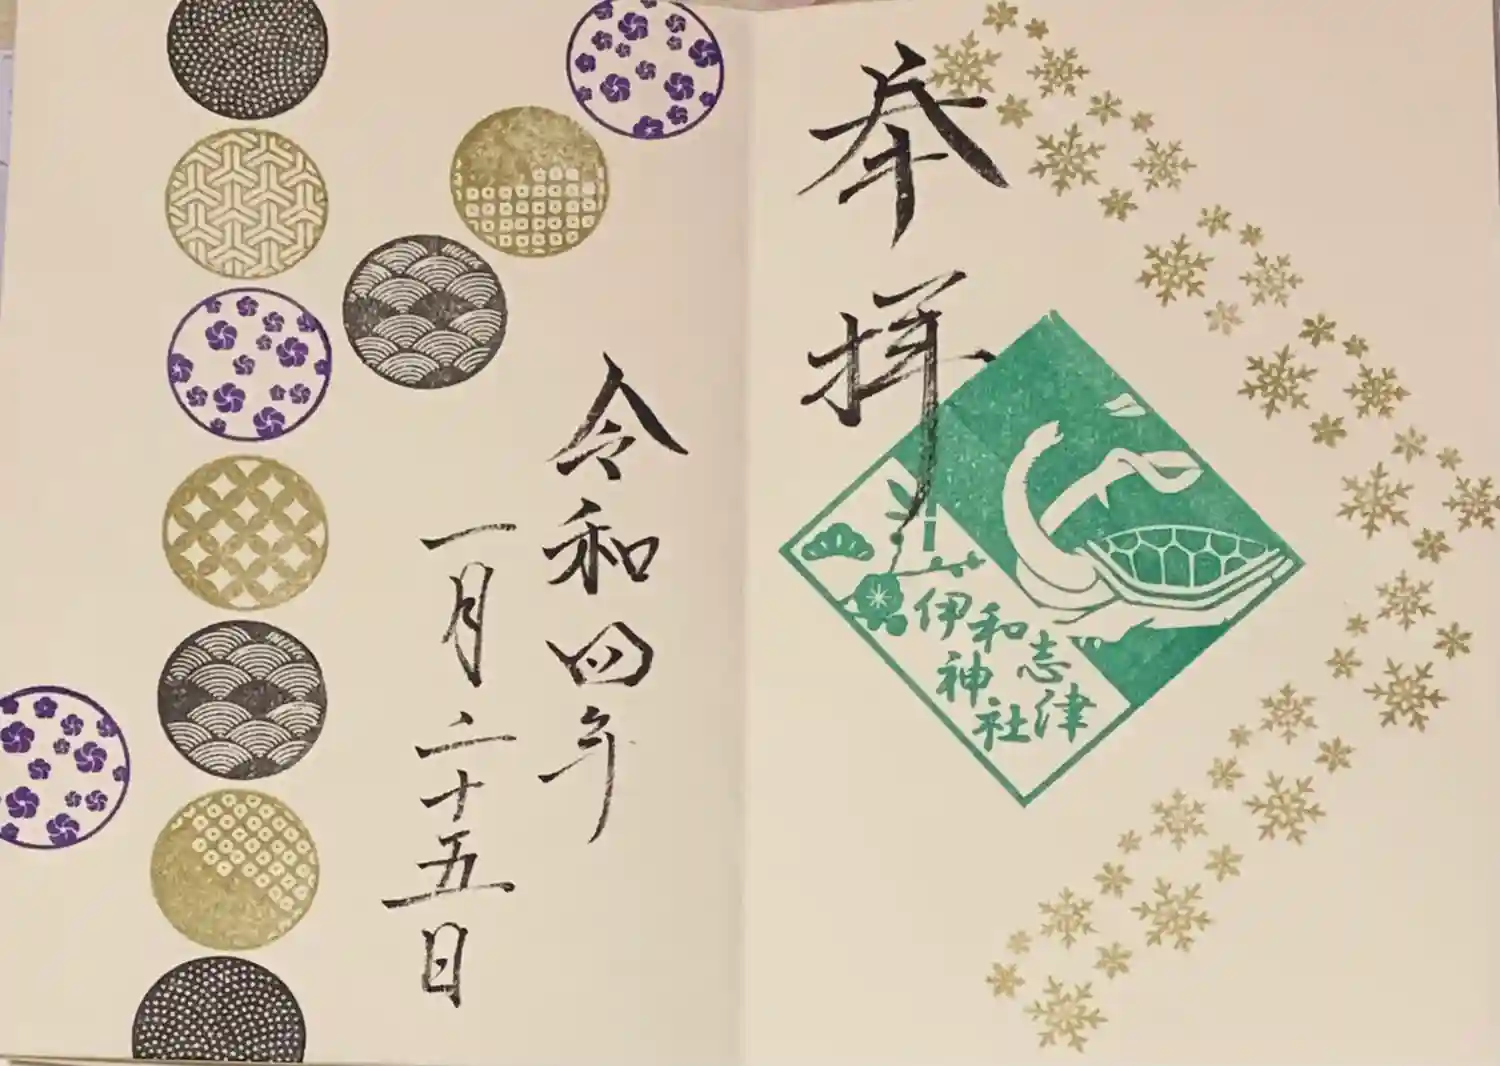 奉拝
志津
和
伊
神社
令和四年
一月二十五日